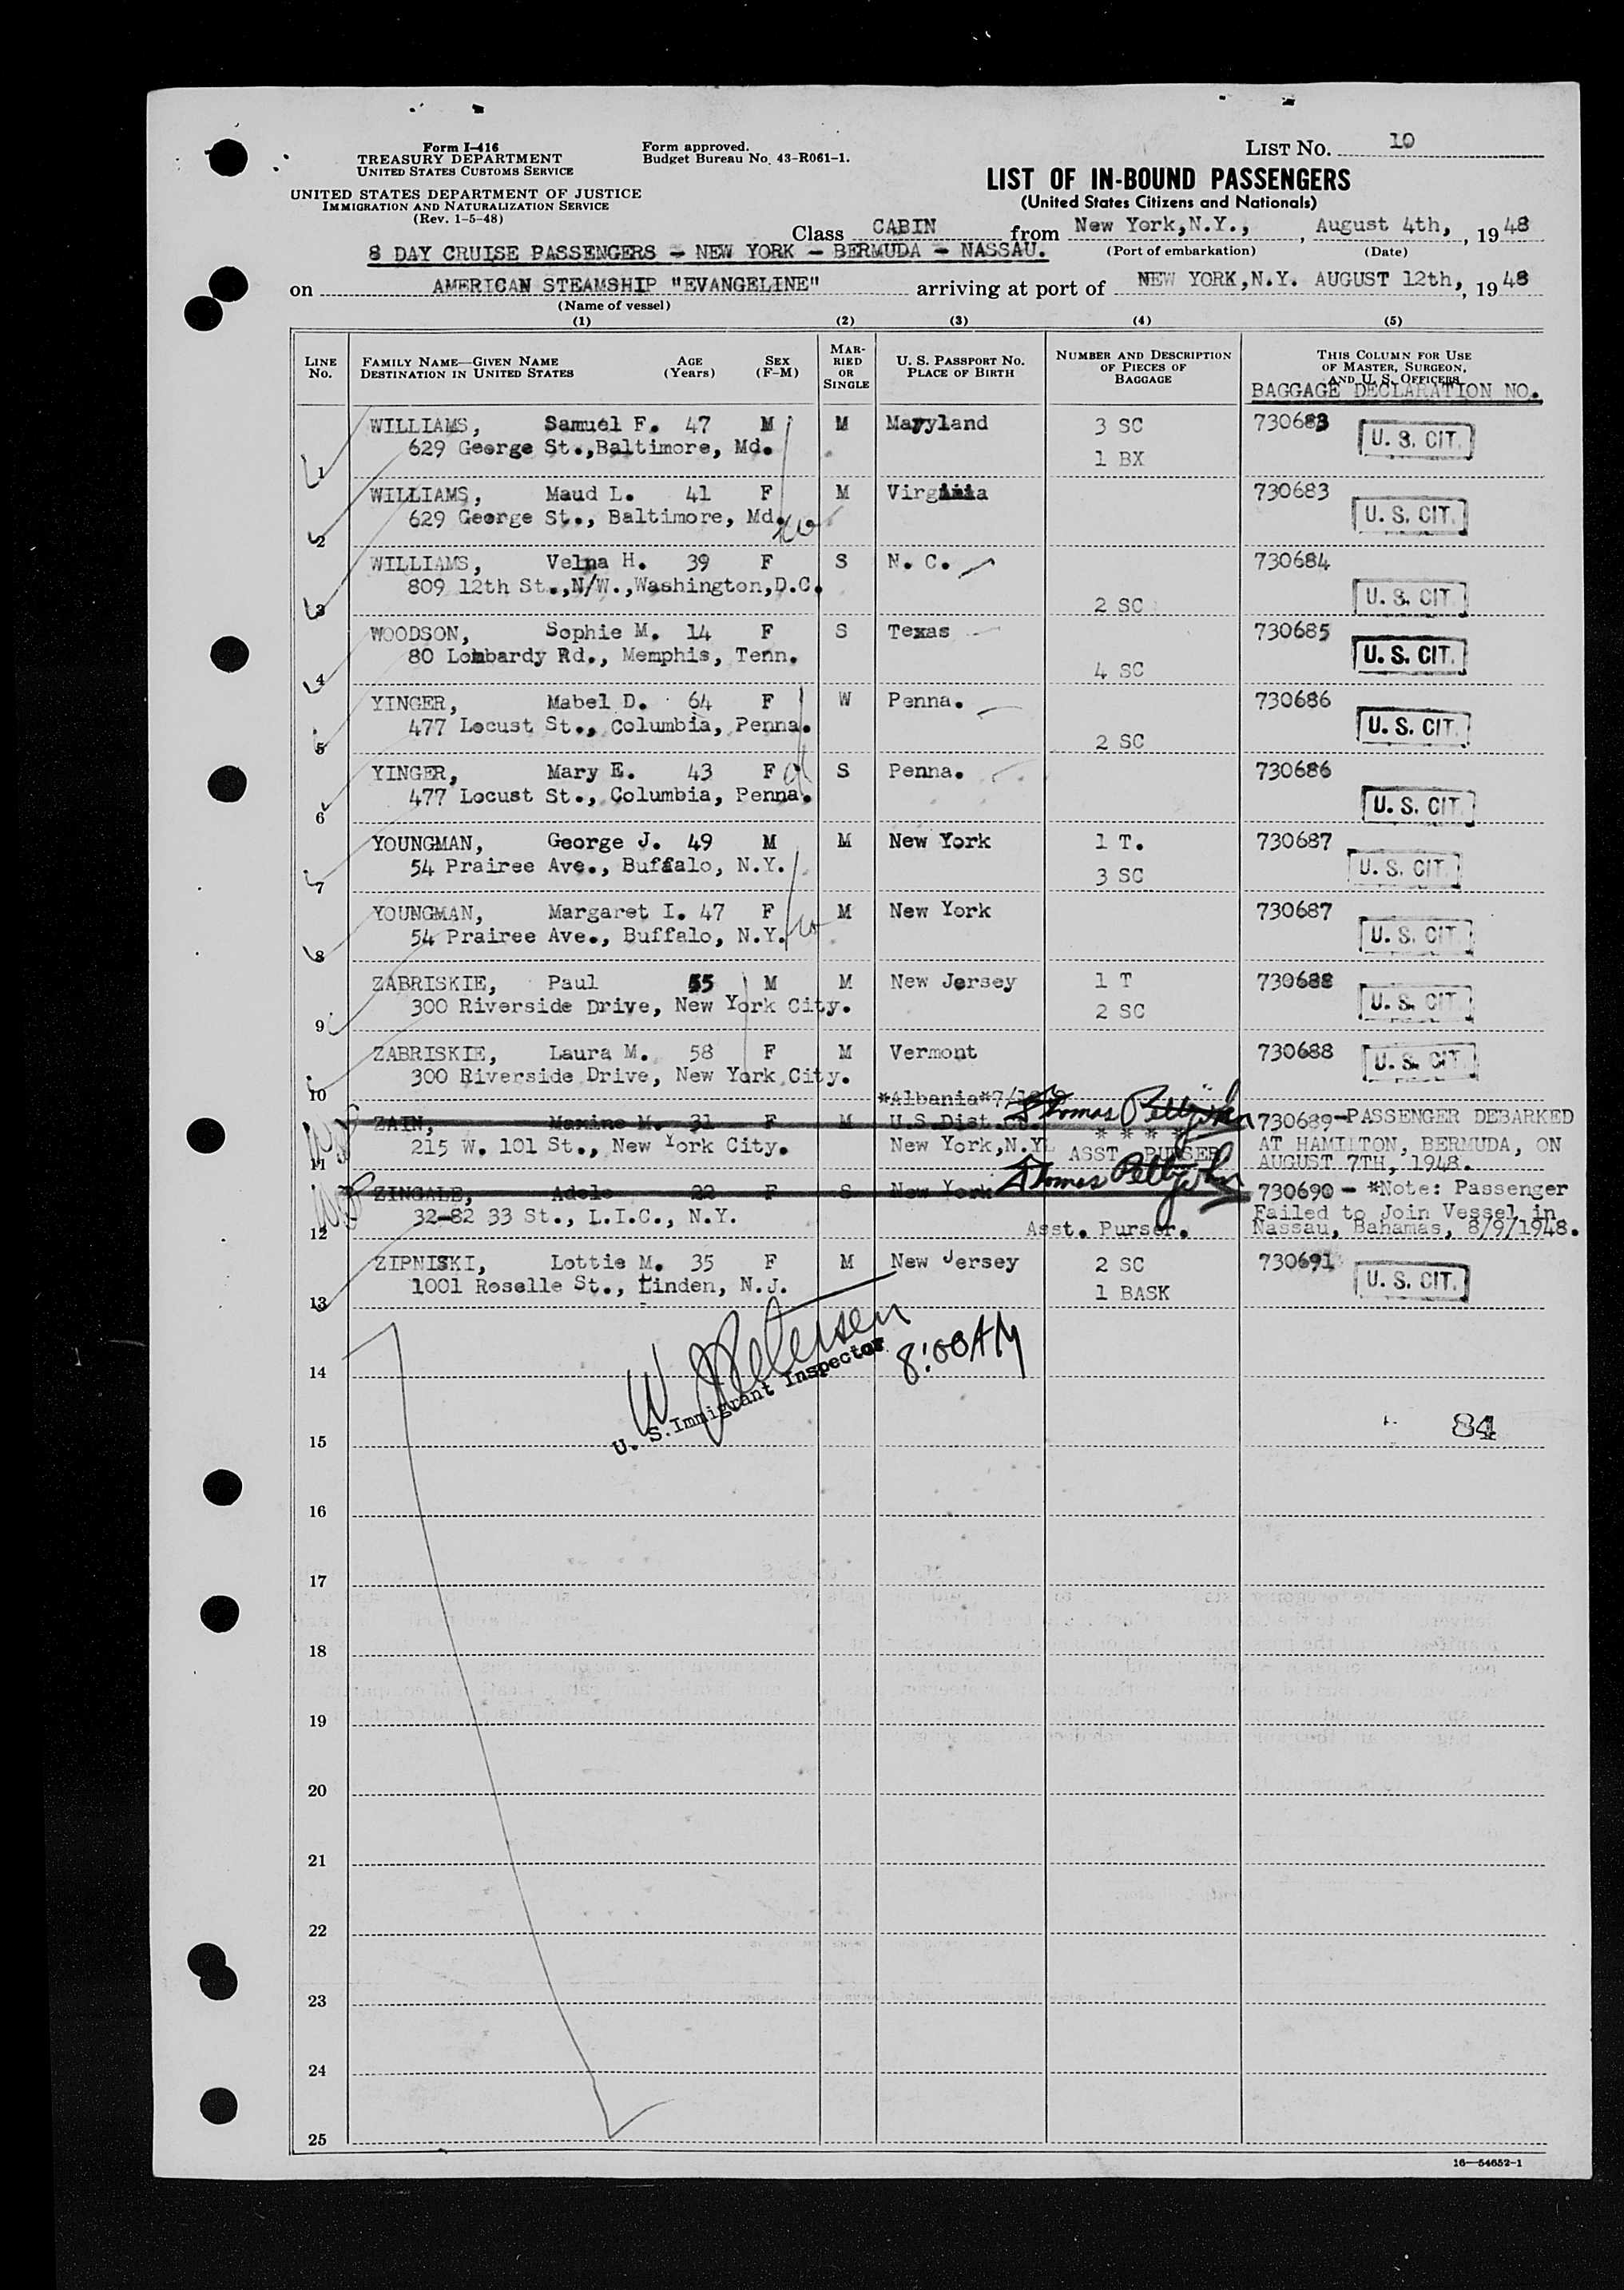 Form I-416
TREASURY DEPARTMENT
UNITED STATES CUSTOMS SERVICE
UNITED STATES DEPARTMENT OF JUSTICE
IMMIGRATION AND NATURALIZATION SERVICE
(Rev. 1-5-48)
Form approved.
Budget Bureau No. 43-R061-1.
LIST No. 10
LIST OF IN-BOUND PASSENGERS
(United States Citizens and Nationals)
Class CABIN from New York,N.Y., , August 4th, , 1948
(Port of embarkation) (Date)
8 DAY CRUISE PASSENGERS - NEW YORK - BERMUDA - NASSAU.
on AMERICAN STEAMSHIP "EVANGELINE" arriving at port of NEW YORK,N.Y. AUGUST 12th, , 1948
(Name of vessel)
(1) (2) (3) (4) (5)
LINE No. FAMILY NAME—GIVEN NAME DESTINATION IN UNITED STATES AGE (Years) SEX (F-M) MARRIED OR SINGLE U. S. PASSPORT NO. PLACE OF BIRTH NUMBER AND DESCRIPTION OF PIECES OF BAGGAGE THIS COLUMN FOR USE OF MASTER, SURGEON, AND U. S. OFFICERS
BAGGAGE DECLARATION NO.
WILLIAMS, Samuel F. 47 M M Maryland 3 SC 730683 U. S. CIT.
1 629 George St.,Baltimore, Md. 1 BX
WILLIAMS, Maud L. 41 F M Virginia 730683 U. S. CIT.
2 629 George St., Baltimore, Md.
WILLIAMS, Velna H. 39 F S N. C. 730684 U. S. CIT.
3 809 12th St.,N/W.,Washington,D.C. 2 SC
WOODSON, Sophie M. 14 F S Texas 730685 U. S. CIT.
4 80 Lombardy Rd., Memphis, Tenn. 4 SC
YINGER, Mabel D. 64 F W Penna. 730686 U. S. CIT.
5 477 Locust St., Columbia, Penna. 2 SC
YINGER, Mary E. 43 F S Penna. 730686 U. S. CIT.
6 477 Locust St., Columbia, Penna.
YOUNGMAN, George J. 49 M M New York 1 T. 730687 U. S. CIT.
7 54 Prairee Ave., Buffalo, N.Y. 3 SC
YOUNGMAN, Margaret I. 47 F M New York 730687 U. S. CIT.
8 54 Prairee Ave., Buffalo, N.Y.
ZABRISKIE, Paul 55 M M New Jersey 1 T 730688 U. S. CIT.
9 300 Riverside Drive, New York City. 2 SC
ZABRISKIE, Laura M. 58 F M Vermont 730688 U. S. CIT.
10 300 Riverside Drive, New York City.
*Albania*7/
ZAIN, Maxine M. 31 F M U.S.Dist. Ct. Thomas Pettyjohn 730689-PASSENGER DEBARKED
11 215 W. 101 St., New York City. New York,N.Y. ASST PURSER AT HAMILTON, BERMUDA, ON
AUGUST 7TH, 1948.
ZINGALE, Adele 22 F S New York Thomas Pettyjohn 730690 - *Note: Passenger
32-82 33 St., L.I.C., N.Y. Failed to Join Vessel in
12 Asst. Purser. Nassau, Bahamas, 8/9/1948.
ZIPNISKI, Lottie M. 35 F M New Jersey 2 SC 730691 U. S. CIT.
13 1001 Roselle St., Linden, N.J. 1 BASK
W Petersen 8:00AM
U. S. Immigrant Inspector
14
84
15
16
17
18
19
20
21
22
23
24
25
16—54652-1